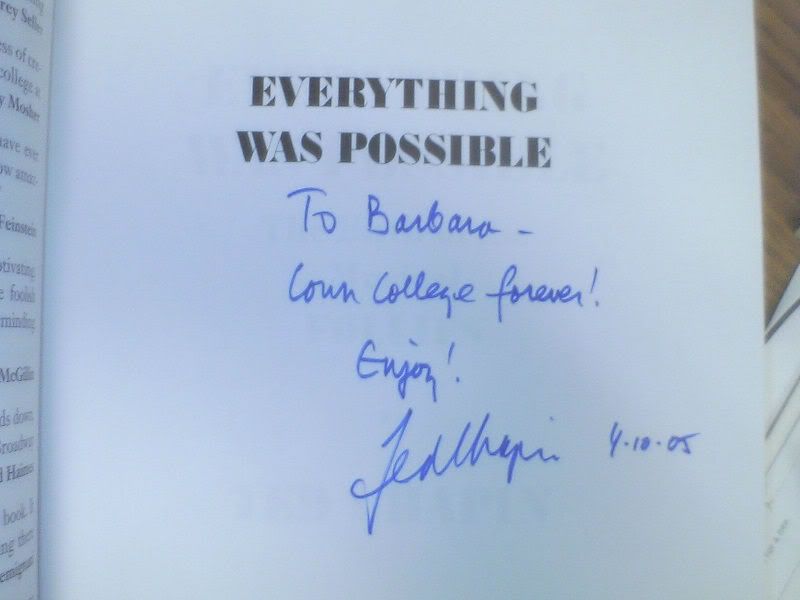 rey Seller
ess of cre-
college at
y Mosher
have ever
ow amaz-
Feinstein
otivating
e foolish
minding
McGillin
ds down,
Broadway
d Haimes
book. It
ing there
emignani
EVERYTHING
WAS POSSIBLE
To Barbara -
Conn College forever!
Enjoy!
Ted Chapin 4.10.05